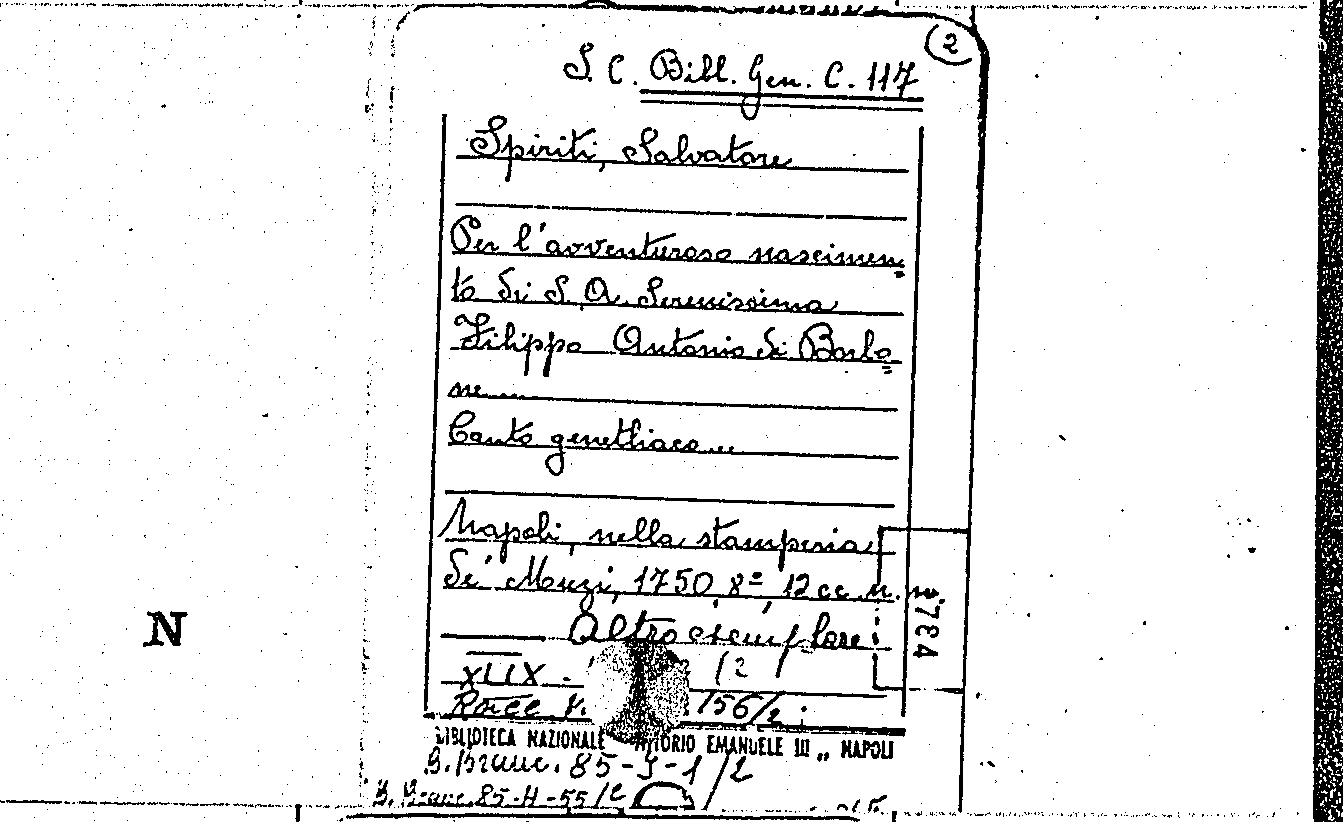 2
S. C. Bibl. Gen. C. 117
Spiriti, Salvatore
Per l'avventuroso nascimen=
to di S. A. Serenissima
Filippo Antonio di Borbo=
ne....
Canto genetliaco...
Napoli, nella stamperia
de' Muzi, 1750, 8º, 12 cc. n. n.
Altro esemplare
XLIX . /2
Racc. /56/2 :
BIBLIOTECA NAZIONALE VITTORIO EMANUELE III „ NAPOLI
B. Branc. 85-I-1/2
B. Branc. 85-H-55/
4784
N